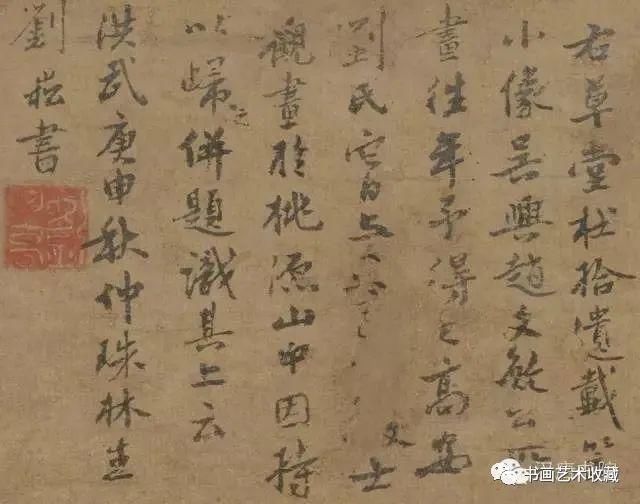 右草堂杜拾遺戴笠
小像吳興趙文敏公所
畫往年予得之高安
劉氏它日与 文士
觀畫於桃源山中因持
以歸之併題識其上云
洪武庚申秋仲珠林生
劉崧書
书画艺术收藏